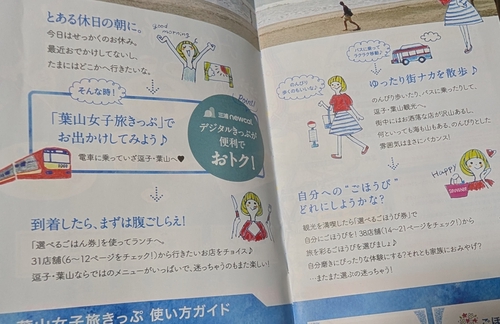 とある休日の朝に。
good morning
今日はせっかくのお休み、
最近おでかけしてないし、
たまにはどこかへ行きたいな。
そんな時!
「葉山女子旅きっぷ」で
お出かけしてみよう♪
電車に乗っていざ逗子・葉山へ♥
Point!
京急 newcal
デジタルきっぷが
便利で
おトク!
到着したら、まずは腹ごしらえ!
「選べるごはん券」を使ってランチへ。
31店舗(6〜12ページをチェック!)から行きたいお店をチョイス♪
逗子・葉山ならではのメニューがいっぱいで、迷っちゃうのもまた楽しい!
葉山女子旅きっぷ 使い方ガイド
バスに乗って
ラクラク移動♪
のんびり
歩くのもいいな♪
ゆったり街ナカを散歩♪
のんびり歩いたり、バスに乗ったりして、
逗子・葉山観光へ。
街中にはお洒落な店が沢山あるし、
何といっても海も山もある、のんびりとした
雰囲気はまさにバカンス!
自分への“ごほうび”
どれにしようかな?
Happy
観光を満喫したら「選べるごほうび券」で
自分にごほうびを!38店舗(14〜21ページをチェック!)から
旅を彩るごほうびを選びましょ♪
自分磨きにぴったりな体験にする?それとも家族におみやげ?
…またまた選ぶの迷っちゃう!